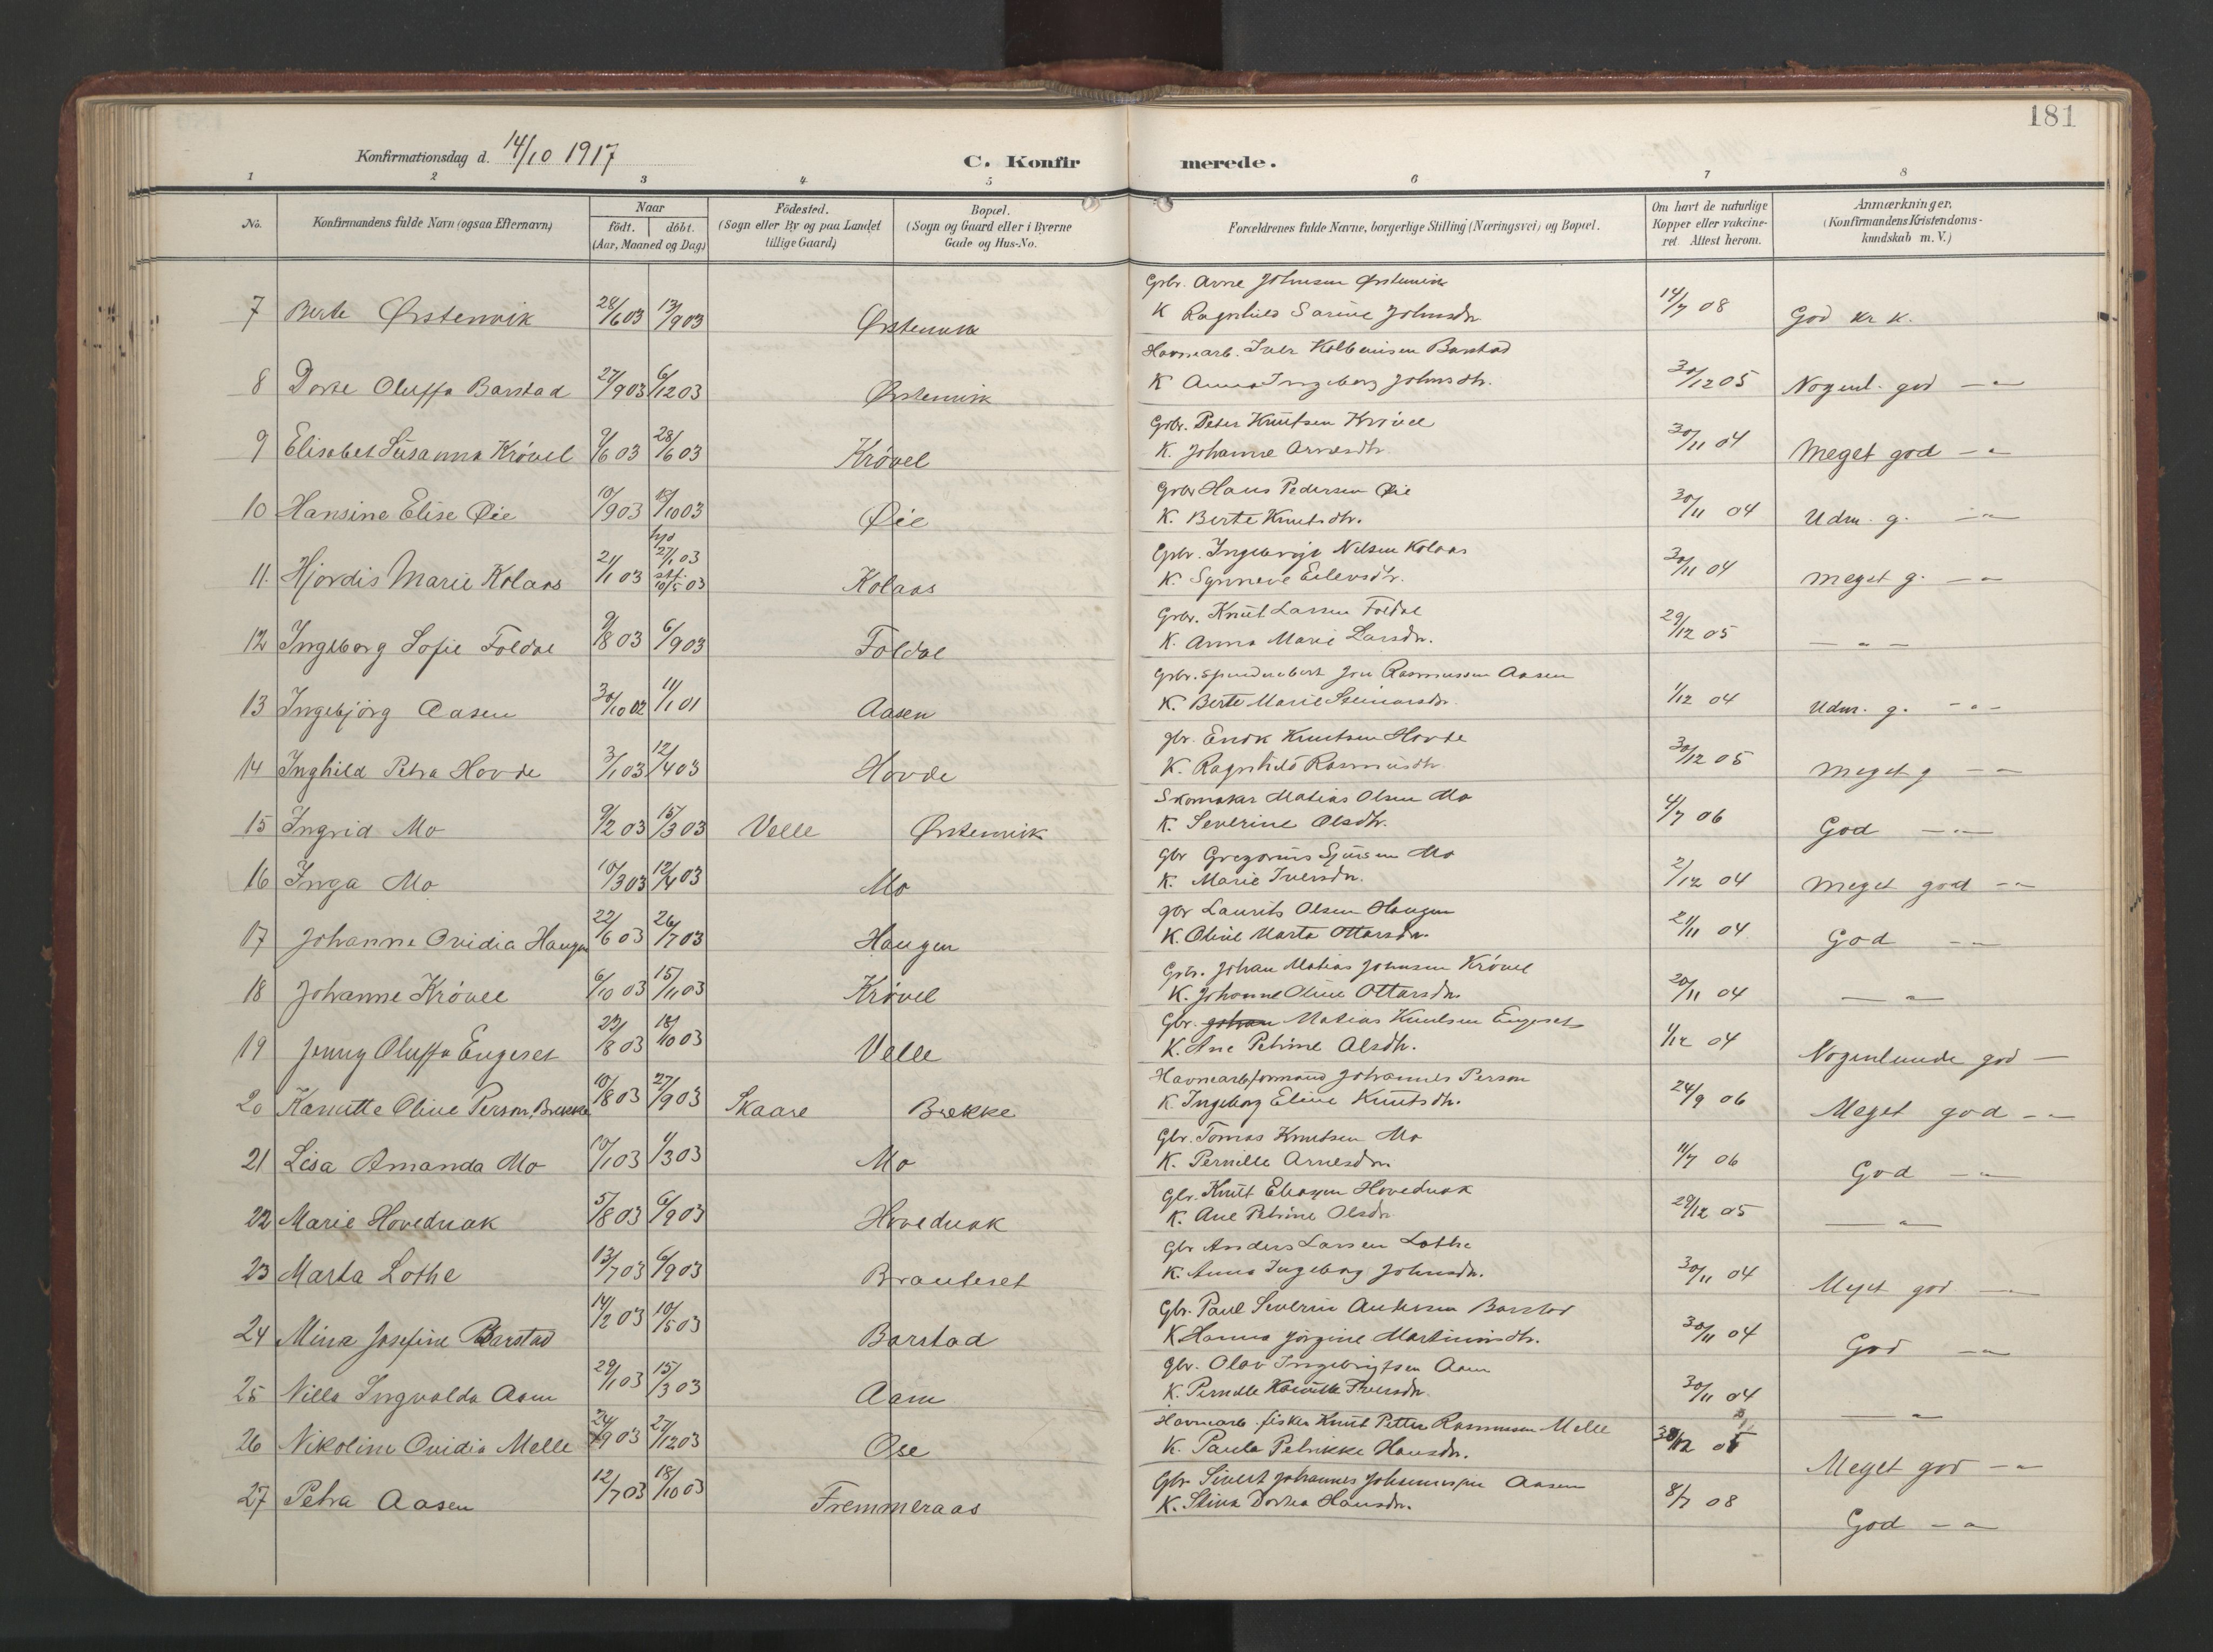 181
Konfirmationsdag d. 14/10 1917
C. Konfir merede.
1 2 3 4 5 6 7 8
No.
Konfirmandens fulde Navn (ogsaa Efternavn)
Naar
födt. döbt.
(Aar, Maaned og Dag)
Födested.
(Sogn eller By og paa Landet
tillige Gaard)
Bopæl.
(Sogn og Gaard eller i Byerne
Gade og Hus-No.
Forældrenes fulde Navne, borgerlige Stilling (Næringsvei) og Bopæl.
Om havt de naturlige
Kopper eller vakcine-
ret. Attest herom.
Anmærkninger,
(Konfirmandens Kristendoms-
kundskab m. V.)
Grbr. Arne Johnsen Ørstenvik
7 Berte Ørstenvik 28/6 03 13/9 03 Ørstenvik K Ragnhild Sarine Johnsdtr. 14/7 08 God kr k.
Havnearb. Iver Kolbeinsen Barstad
8 Dorte Oluffa Barstad 27/9 03 6/12 03 Ørstenvik K Anna Ingeborg Johnsdtr. 30/12 05 Nogenl. god — " —
Grbr. Peter Knutsen Krövel
9 Elisabet Susanna Krövel 9/6 03 28/6 03 Krövel K. Johanne Arnesdtr. 30/11 04 Meget god — " —
Grbr Hans Pedersen Øie
10 Hansine Elise Øie 10/9 03 18/10 03 Øie K. Berte Knutsdtr. 30/11 04 Udm. g. — " —
Grbr. Ingebrigt Nilsen Kolaas
11. Hjördis Marie Kolaas 21/1 03 hjd 27/1 03 stf. 10/5 03 Kolaas K. Synneve Eilevsdtr. 30/11 04 Meget g. — " —
Grbr. Knut Larsen Foldal
12 Ingeborg Sofie Foldal 9/8 03 6/9 03 Foldal K. Anna Marie Larsdtr. 29/12 05 — " —
Grbr. Jon Rasmussen Aasen
13 Ingebjörg Aasen 30/10 02 11/1 01 Aasen K. Berte Marie Steinarsdtr. 1/12 04 Udm. g. — " —
gbr. Enok Knutsen Hovde
14 Inghild Petra Hovde 3/1 03 12/4 03 Hovde K. Ragnhild Rasmusdtr. 30/12 05 Meget g — " —
Skomaker Matias Olsen Mo
15 Ingrid Mo 9/2 03 15/3 03 Velle Ørstenvik K. Severine Olsdtr. 4/7 06 God — " —
Gbr Gregorius Sjursen Mo
16 Inga Mo 10/3 03 12/4 03 Mo K. Marie Iversdtr. 2/12 04 Meget god — " —
gbr Laurits Olsen Haugen
17 Johanne Ovidia Haugen 22/6 03 26/7 03 Haugen K. Oline Marta Ottarsdtr. 21/11 04 God — " —
Grbr. Johan Matias Johnsen Krövel
18 Johanne Krövel 6/10 03 15/11 03 Krövel K. Johanne Oline Ottarsdtr. 20/11 04 — " —
Gbr. Johan Matias Knutsen Engeset
19 Jenny Oluffa Engeset 23/8 03 18/10 03 Velle K. Ane Petrine Olsdtr. 1/12 04 Nogenlunde god —
Havnearb.formand Johannes Person
20 Kanutte Oline Person, Brekke 10/8 03 27/9 03 Skaare Brekke K. Ingeborg Eline Knutsdtr. 24/9 06 Meget god — " —
Gbr. Tomas Knutsen Mo
21 Lisa Amanda Mo 10/1 03 1/3 03 Mo K. Pernille Arnesdtr. 11/7 06 God — " —
Gbr. Knut Eliassen Hovednak
22 Marie Hovednak 5/8 03 6/9 03 Hovednak K. Ane Petrine Olsdtr. 29/12 05 — " —
Gbr Anders Larsen Lothe
23 Marta Lothe 13/7 03 6/9 03 Brauteset K. Anna Ingeborg Johnsdtr. 30/11 04 Meget god — " —
Gbr. Paul Severin Andersen Barstad
24 Mina Josefine Barstad 14/2 03 10/5 03 Barstad K Hanna Jörgine Martinusdtr. 30/11 04 God — " —
gbr. Olav Ingebrigtsen Aam
25 Nilla Ingvalda Aam 29/1 03 15/3 03 Aam K. Pernille Iversdtr. 30/11 04 — " —
Havnearb. fisker Knut Petter Rasmussen Melle
26 Nikoline Ovidia Melle 24/9 03 27/12 03 Ose K. Paula Petrikke Hansdtr. 30/12 05 Meget god — " —
Gbr. Sivert Johannes Johannessen Aasen
27 Petra Aasen 12/7 03 18/10 03 Fremmeraas K. Stina Dortea Hansdtr. 8/7 08 God — " —